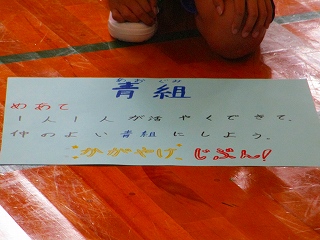 あおぐみ
青組
めあて
1人1人が活やくできて、
仲のよい青組にしよう。
かがやけ じぶん!